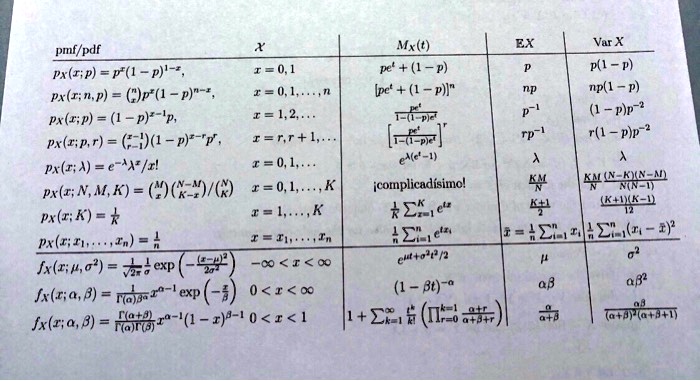 pmf/pdf 𝒳 M_X(t) EX Var X
p_X(x; p) = p^x(1 − p)^{1−x}, x = 0, 1 pe^t + (1 − p) p p(1 − p)
p_X(x; n, p) = \binom{n}{x}p^x(1 − p)^{n−x}, x = 0, 1, . . . , n [pe^t + (1 − p)]^n np np(1 − p)
p_X(x; p) = (1 − p)^{x−1}p, x = 1, 2, . . . \frac{pe^t}{1−(1−p)e^t} p^{−1} (1 − p)p^{−2}
p_X(x; p, r) = \binom{x−1}{r−1}(1 − p)^{x−r}p^r, x = r, r + 1, . . . \left[\frac{pe^t}{1−(1−p)e^t}\right]^r rp^{−1} r(1 − p)p^{−2}
p_X(x; λ) = e^{−λ}λ^x/x! x = 0, 1, . . . e^{λ(e^t−1)} λ λ
p_X(x; N, M, K) = \binom{M}{x}\binom{N−M}{K−x}/\binom{N}{K} x = 0, 1, . . . , K ¡complicadísimo! \frac{KM}{N} \frac{KM}{N}\frac{(N−K)(N−M)}{N(N−1)}
p_X(x; K) = \frac{1}{K} x = 1, . . . , K \frac{1}{K}\sum_{x=1}^{K} e^{tx} \frac{K+1}{2} \frac{(K+1)(K−1)}{12}
p_X(x; x_1, . . . , x_n) = \frac{1}{n} x = x_1, . . . , x_n \frac{1}{n}\sum_{i=1}^{n} e^{tx_i} \bar{x} = \frac{1}{n}\sum_{i=1}^{n} x_i \frac{1}{n}\sum_{i=1}^{n}(x_i − \bar{x})^2
f_X(x; μ, σ^2) = \frac{1}{\sqrt{2π}}\frac{1}{σ} exp\left(−\frac{(x−μ)^2}{2σ^2}\right) −∞ < x < ∞ e^{μt+σ^2t^2/2} μ σ^2
f_X(x; α, β) = \frac{1}{Γ(α)β^α}x^{α−1} exp\left(−\frac{x}{β}\right) 0 < x < ∞ (1 − βt)^{−α} αβ αβ^2
f_X(x; α, β) = \frac{Γ(α+β)}{Γ(α)Γ(β)}x^{α−1}(1 − x)^{β−1} 0 < x < 1 1 + \sum_{k=1}^{∞} \frac{t^k}{k!}\left(\prod_{r=0}^{k−1} \frac{α+r}{α+β+r}\right) \frac{α}{α+β} \frac{αβ}{(α+β)^2(α+β+1)}